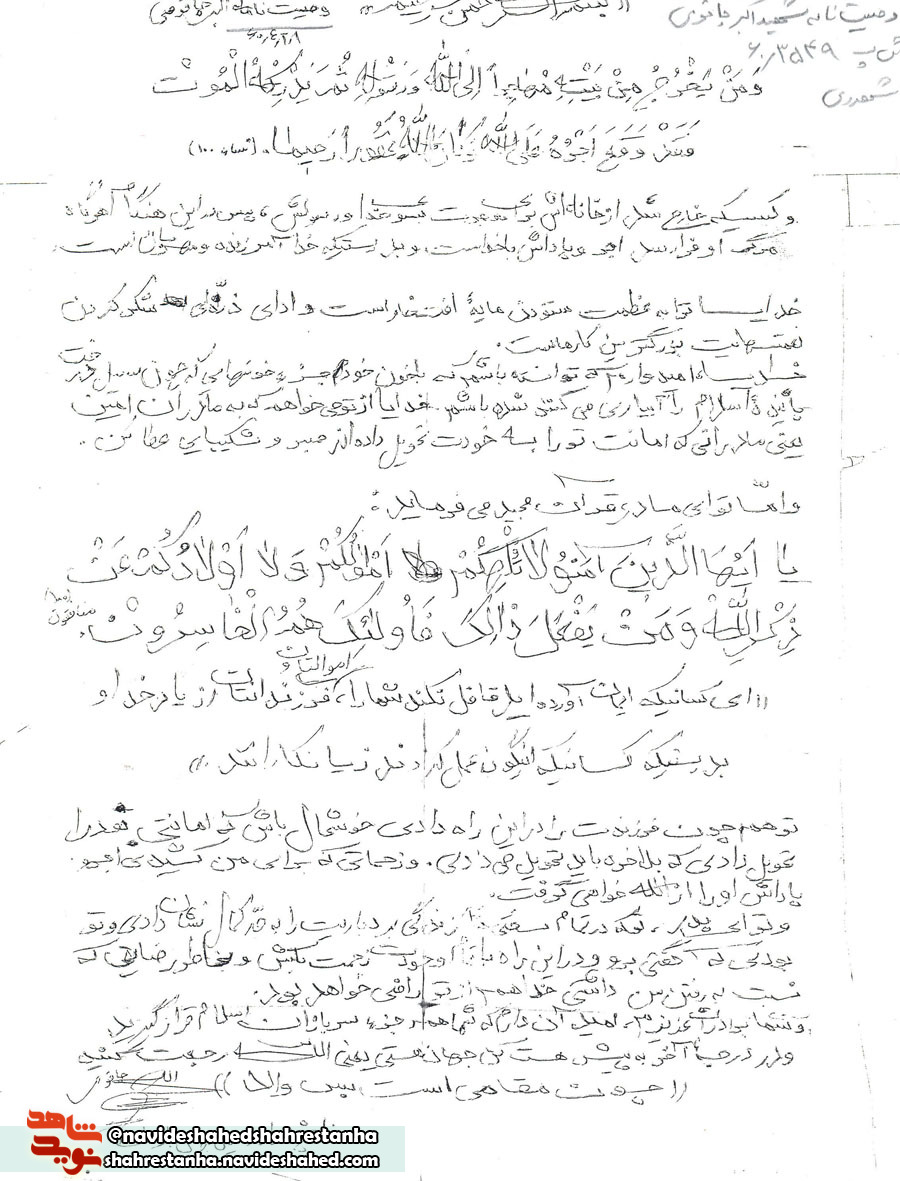 وصیت نامه شهید اکبر جانوری
ش پ ۶۰/۳۵۴۹
((بسم الله الرحمن الرحیم))
وصیت نامه اکبر
۶۰,۴,۲۸
وَمَنْ يَخْرُجْ مِنْ بَيْتِهِ مُهاجِراً اِلَی اللّهِ وَ رَسُولِهِ ثُمَّ يُدْرِكْهُ الْمَوْت
فَقَدْ وَقَعَ اَجْرُهُ عَلَی اللّهِ وَ كانَ اللّهُ غَفُوراً رَحیما. (نساء ۱۰۰)
و کسیکه خارج شد از خانه‌اش برای هجرت بسوی خدا و رسولش، پس در این هنگام آهرگاه
مرگ او فرا رسد اجر و پاداش باخداست، و بدرستیکه خدا آمرزنده و مهربان است.
خدایا ترا به عظمت ستودن مایۀ افتخار است و ادای ذرّه‌ای شکر کردن
نعمتهایت بزرگترین کارهاست.
خدایا، امیدوارم که توانسته باشم که باخون خودم جزء خونهایی که چون سیل
پائین ۀ اسلام را آبیاری می کنند شده باشم. خدایا از تو می خواهم که به مادران امین
یعنی مادرانی که امانت تو را به خودت تحویل داده‌اند صبر و شکیبایی عطا کن.
و امّا تو ای مادر، قرآن مجید می فرماید:
یا اَیُّهَا الَّذینَ آمَنُو لاتُلْهِكُمْ اَمْوالُكُمْ وَ لا اَوْلادُكُمْ عَنْ
ذِکْرِ اللّهِ وَ مَنْ یَفْعَلْ ذالِكَ فَأُولئِكَ هُمُ الْخاسِرُونْ.
منافقون
((ای کسانیکه ایمان آورده اید غافل نکند شما را، اموالتان و فرزندانتان از یاد خدا و
بدرستیکه کسانیکه اینگونه عمل کردند زیانکارانند))
تو هم چون فرزندت را در این راه دادی خوشحال باش که امانتی خود را
تحویل دادی که بلاخره باید تحویل می دادی. و زحماتی که برای من کشیدی اجر و
پاداش او را از الله خواهی گرفت.
و تو ای پدر، توکه در تمام سختی زندگی بردباریت را به حدّ کمال نشان دادی و تو
بودی که گفتی برو و در این راه با تمام وجودت زحمت بکش و بخاطر رضایتی که
نسبت به رفتن من داشتی خدا هم از تو راضی خواهد بود.
و شما برادران عزیزم، امید آن دارم که شما هم جزء سربازان اسلام قرار گیرید.
و در درجۀ آخر به پیش هست کن جهان هستی یعنی الله رجعت کنید
((چون مقامی است بس والا))
@navideshahedshahrestanha
shahrestanha.navideshahed.com
نوید شاهد